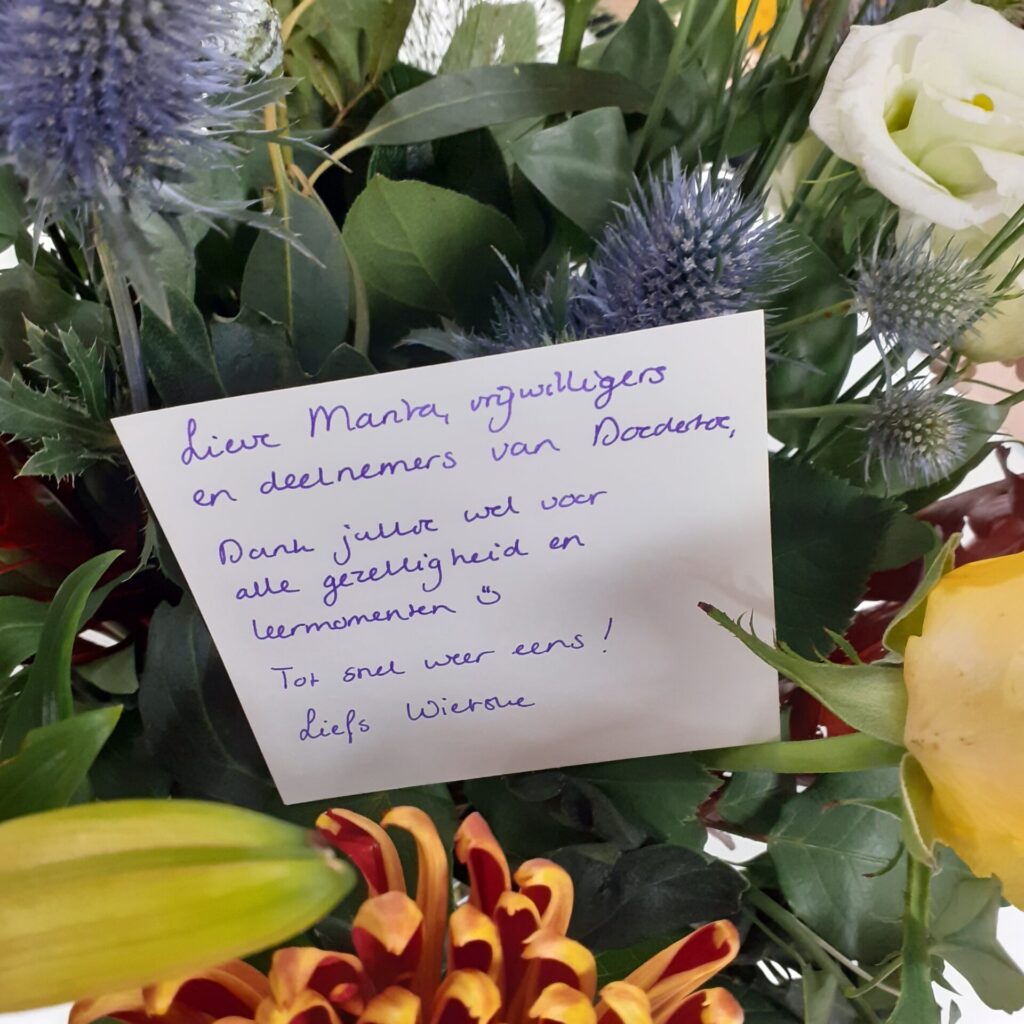 Lieve Marita, vrijwilligers
en deelnemers van Doedertoe,
Dank jullie wel voor
alle gezelligheid en
leermomenten ☺
Tot snel weer eens!
Liefs Wietske